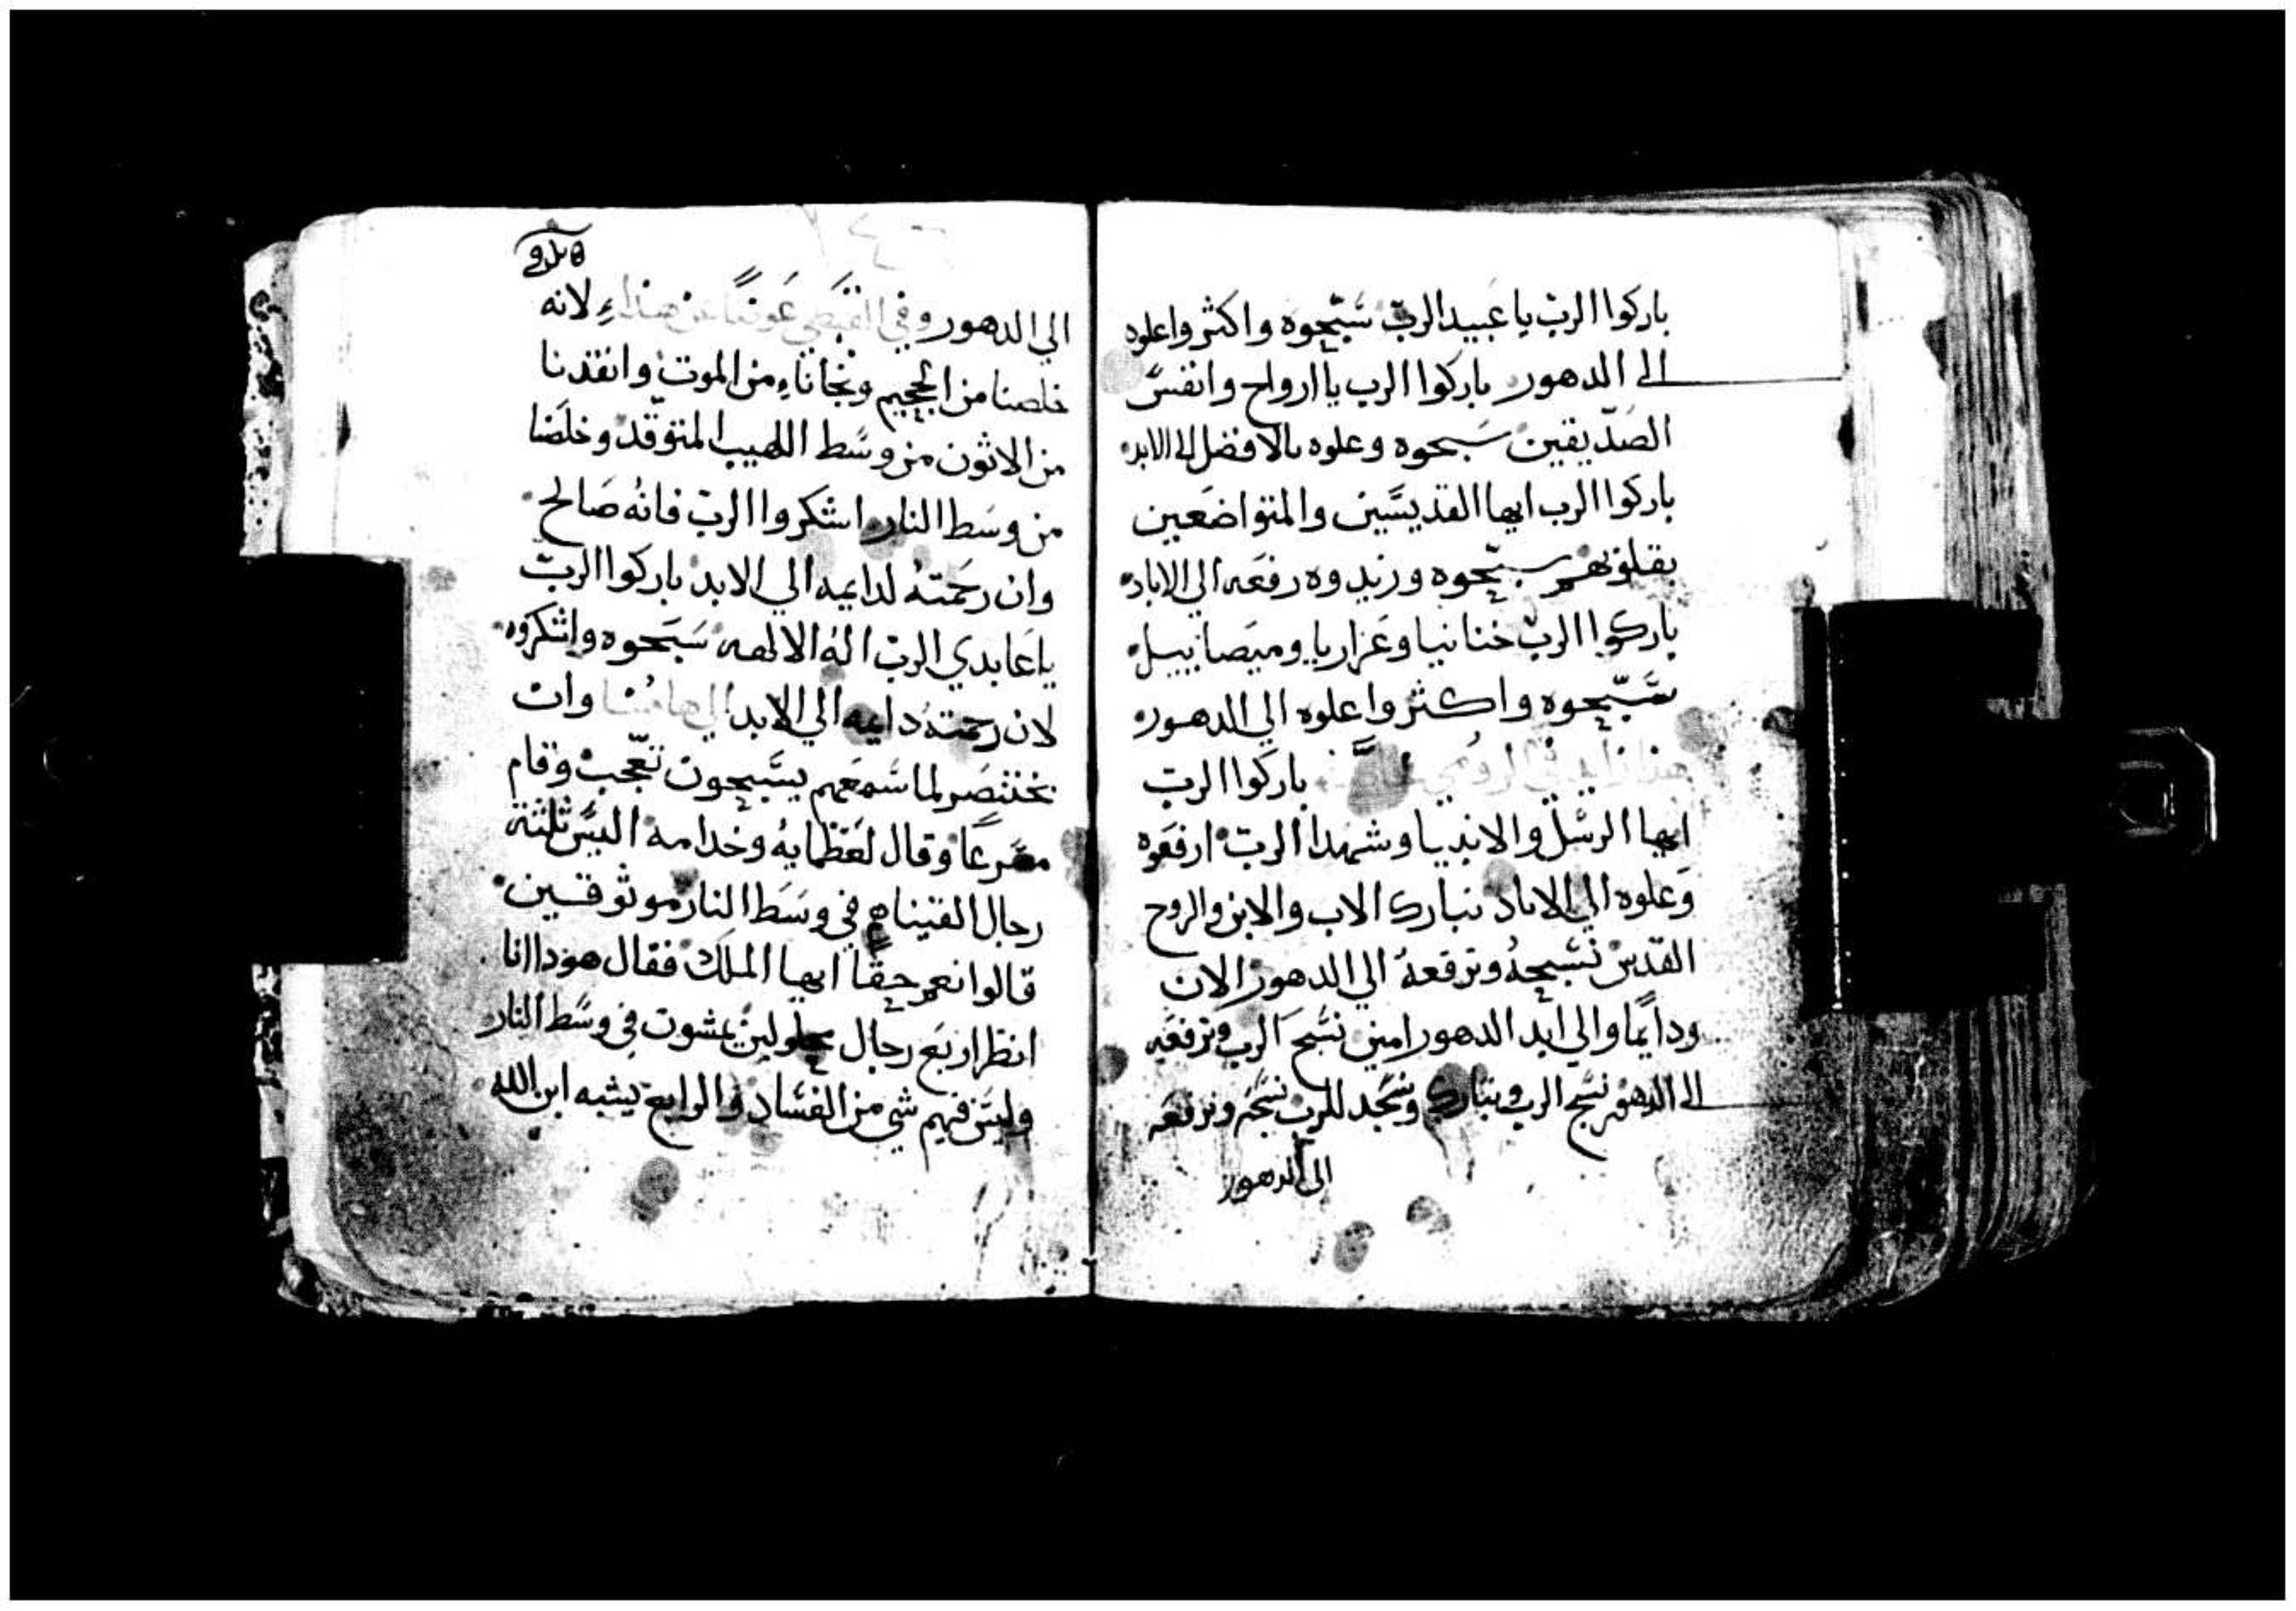 باركوا الرب يا عبيد الرب سبحوه واكثروا علوه
الى الدهور باركوا الرب ياارواح وانفس
الصديقين سبحوه وعلوه بالافضل الى الابد
باركوا الرب ايها القديسين والمتواضعين
بقلوبهم سبحوه وزيدوه رفعه الى الاباد
باركوا الرب حنانيا وعزاريا وميصاييل
سبحوه واكثروا علوه الي الدهور
هذا في الرومي باركوا الرب
ايها الرسل والانبيا وشهدا الرب ارفعوه
وعلوه الي الاباد نبارك الاب والابن والروح
القدس نسبحه ونرفعه الي الدهور الان
ودايما والي ابد الدهور امين نسبح الرب ونرفعه
الى الدهور نسبح الرب ونبارك ونسجد للرب نسبحه ونرفعه
الى الدهور
الي الدهور وفي القبطي عوضا عن هذا لانه
خلصنا من الجحيم ونجانا من الموت وانقذنا
من الاتون من وسط اللهيب المتوقد وخلصنا
من وسط النار اشكروا الرب فانه صالح
وان رحمته لدايمه الي الابد باركوا الرب
يا عابدي الرب اله الالهه سبحوه واشكروه
لان رحمته دايمه الي الابد الي هاهنا وان
بختنصر لما سمعهم يسبحون تعجب وقام
مسرعا وقال لعظمايه وخدامه اليس ثلثة
رجال القيناهم في وسط النار موثوقين
قالوا نعم حقا ايها الملك فقال هوذا انا
انظر اربع رجال محلولين يمشون في وسط النار
وليس فيهم شي من الفساد والرابع يشبه ابن الله